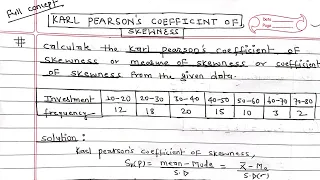 full concept
KARL PEARSON'S COEFFICENT OF
SKEWNESS
Date
Page
# calculate the Karl pearson's coefficient of
skewness or measure of skewness or coefficient
of skewness from the given data.
Investment 10-20 20-30 30-40 40-50 50-60 60-70 70-80
frequency 12 18 20 15 10 3 2
solution :
Karl pearson's coefficient of skewness,
Sk(P) = mean - Mode = X̄ - Mo
S.D S.D(σ)